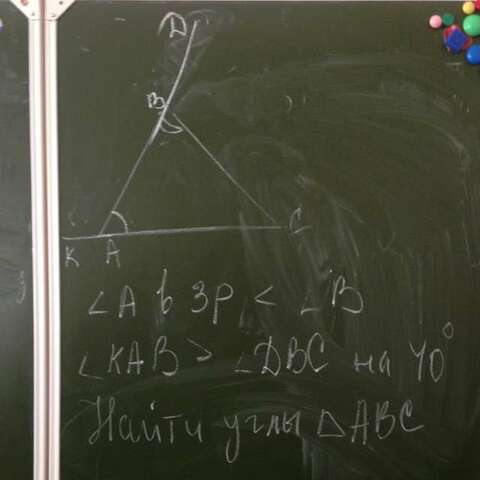 D
B
C
K A
∠A в 3р < ∠B
∠KAB > ∠DBC на 40°
Найти углы △ABC